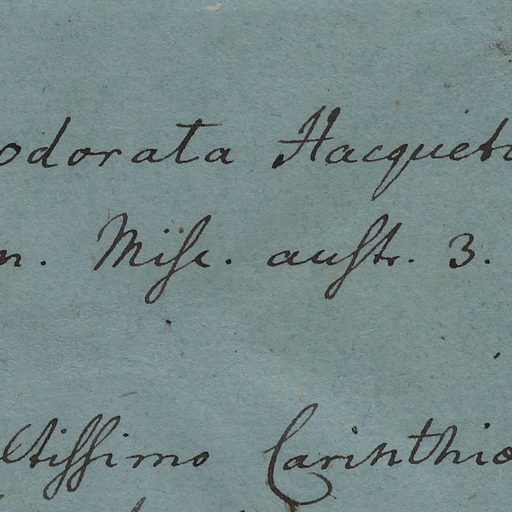 odorata Hacqueti
n. Misc. austr. 3.
ltissimo Carinthia